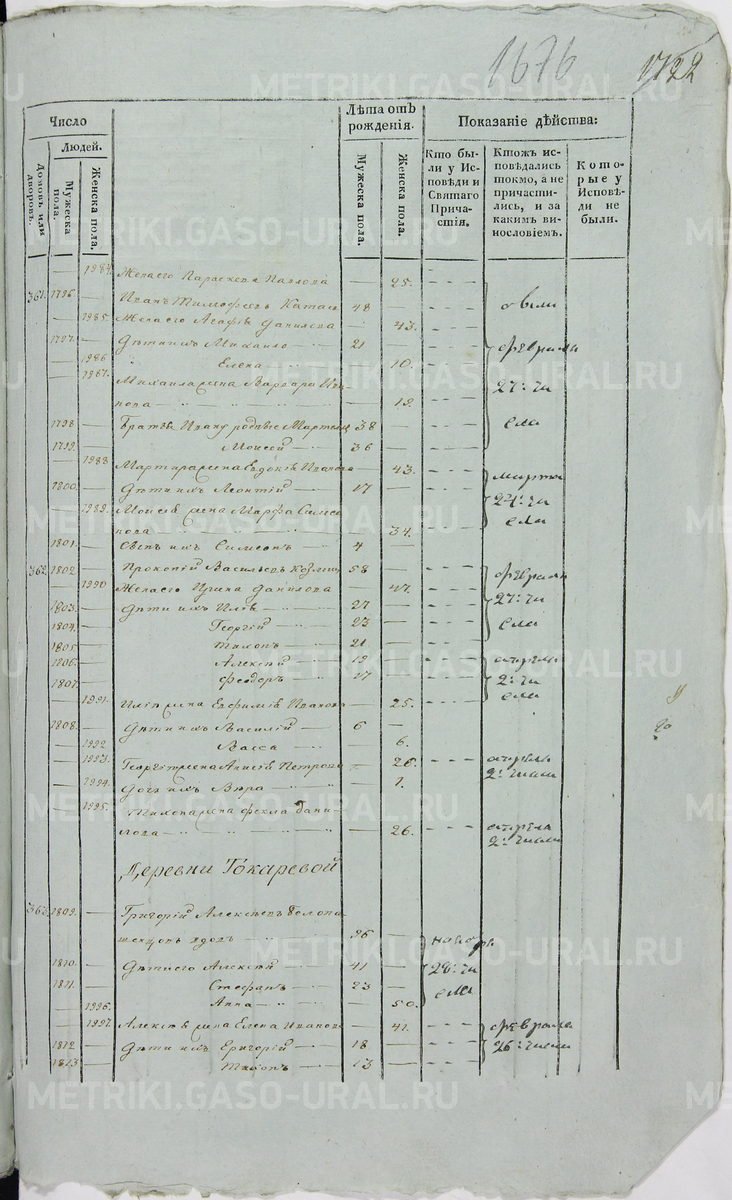 1676
1722
Число
Людей.
Домовъ или дворовъ.
Мужеска пола.
Женска пола.
Лѣта отъ рожденія.
Мужеска пола.
Женска пола.
Показаніе дѣйства:
Кто были у Исповѣди и Святаго Причастія.
Ктожъ исповѣдались токмо, а не причастились, и за какимъ винословіемъ.
Которые у Исповѣди не были.
1984. Жена его Параскева Павлова — 25.
361. 1796. Иванъ Тимофеевъ 48
1985. Жена его Агафія Данилова — 43.
1797. Дѣти ихъ Михаило 21 — февраля
1986 Елена — 10.
1987. Михаила жена Варвара Ива 27: чи
нова — 19.
1798 Братья Ивану родные Мартинъ 38 сла
1799. Моисей 36
1988 Мартина жена Евдокія Иванова — 43. марта
1800. Дѣти ихъ Леонтій 17 — 24: чи
1989. Моисея жена Марфа Симео сла
нова — 34.
1801. Сынъ ихъ Симеонъ 4
362. 1802. Прокопій Васильевъ 58 — февраля
1990 Жена его Ирина Данилова — 47. 27: чи
1803. Дѣти ихъ Илія 27 —
1804. Георгій 23 — сла
1805. Тихонъ 21 —
1806. Алексѣй 19 апрѣля
1807. Феодоръ 17 — 2: чи
1991. Иліи жена Евфимія Иванова — 25. сла
1808. Дѣти ихъ Василій 6 —
1992 Васса — 6.
1993. Георгія жена Анисія Петрова — 26. апрѣля
1994. Дочь ихъ Вѣра — 1. 2: числа
1995. Тихона жена Фекла Дани
лова — 26. апрѣля 2: числа
Деревни Токаревой
363. 1809. Григорій Алексѣевъ Бѣлопа
шенцовъ вдовъ 96 —
1810. Дѣти его Алексѣй 41 — 28: чи
1811. Стефанъ 23 — сла
1996. Анна — 50.
1997. Алексѣя жена Елена Иванова — 41. февраля
1812 Дѣти ихъ Григорій 18 — 26: числа
1813 Тихонъ 13 —
METRIKI.GASO-URAL.RU